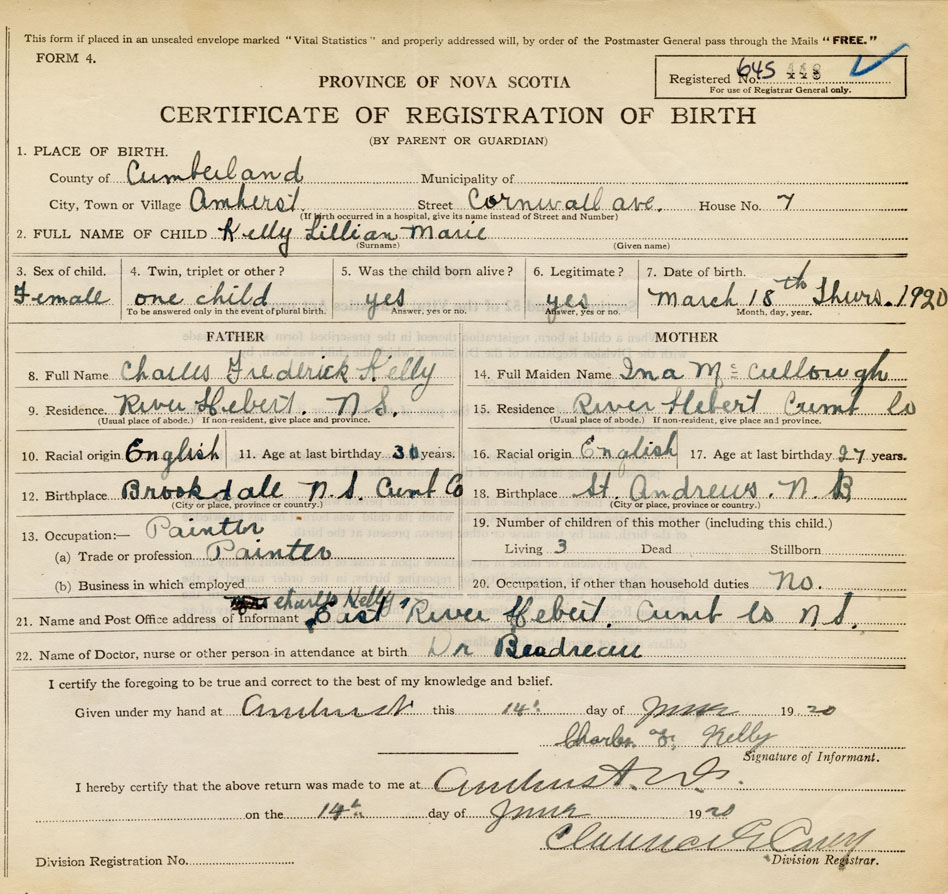 This form if placed in an unsealed envelope marked "Vital Statistics" and properly addressed will, by order of the Postmaster General pass through the Mails "FREE."
FORM 4.
Registered No. 645 448
For use of Registrar General only.
PROVINCE OF NOVA SCOTIA
CERTIFICATE OF REGISTRATION OF BIRTH
(BY PARENT OR GUARDIAN)
1. PLACE OF BIRTH.
County of Cumberland Municipality of
City, Town or Village Amherst Street Cornwall ave. House No. 7
(If birth occurred in a hospital, give its name instead of Street and Number)
2. FULL NAME OF CHILD Kelly Lillian Marie
(Surname) (Given name)
3. Sex of child. 4. Twin, triplet or other? 5. Was the child born alive? 6. Legitimate? 7. Date of birth.
Female one child yes yes March 18th Thurs. 1920
To be answered only in the event of plural birth. Answer, yes or no. Answer, yes or no. Month, day, year.
FATHER MOTHER
8. Full Name Charles Frederick Kelly 14. Full Maiden Name Ina Mc Cullough
9. Residence. River Hebert. N.S. 15. Residence River Hebert Cumt Co
(Usual place of abode.) If non-resident, give place and province. (Usual place of abode.) If non-resident, give place and province.
10. Racial origin English 11. Age at last birthday years. 16. Racial origin English 17. Age at last birthday 27 years.
12. Birthplace Brookdale N.S. Cumt Co 18. Birthplace St. Andrews. N B
(City or place, province or country.) (City or place, province or country.)
13. Occupation:— Painter 19. Number of children of this mother (including this child.)
(a) Trade or profession Painter Living 3 Dead Stillborn
(b) Business in which employed 20. Occupation, if other than household duties No.
Charles Kelly
21. Name and Post Office address of Informant East River Hebert. Cumt Co N S.
22. Name of Doctor, nurse or other person in attendance at birth Dr Beadreau
I certify the foregoing to be true and correct to the best of my knowledge and belief.
Given under my hand at Amherst this 14th day of June 1920
Charles F. Kelly
Signature of Informant.
I hereby certify that the above return was made to me at Amherst N.S.
on the 14th day of June 1920
Clarence E Casey
Division Registration No. Division Registrar.